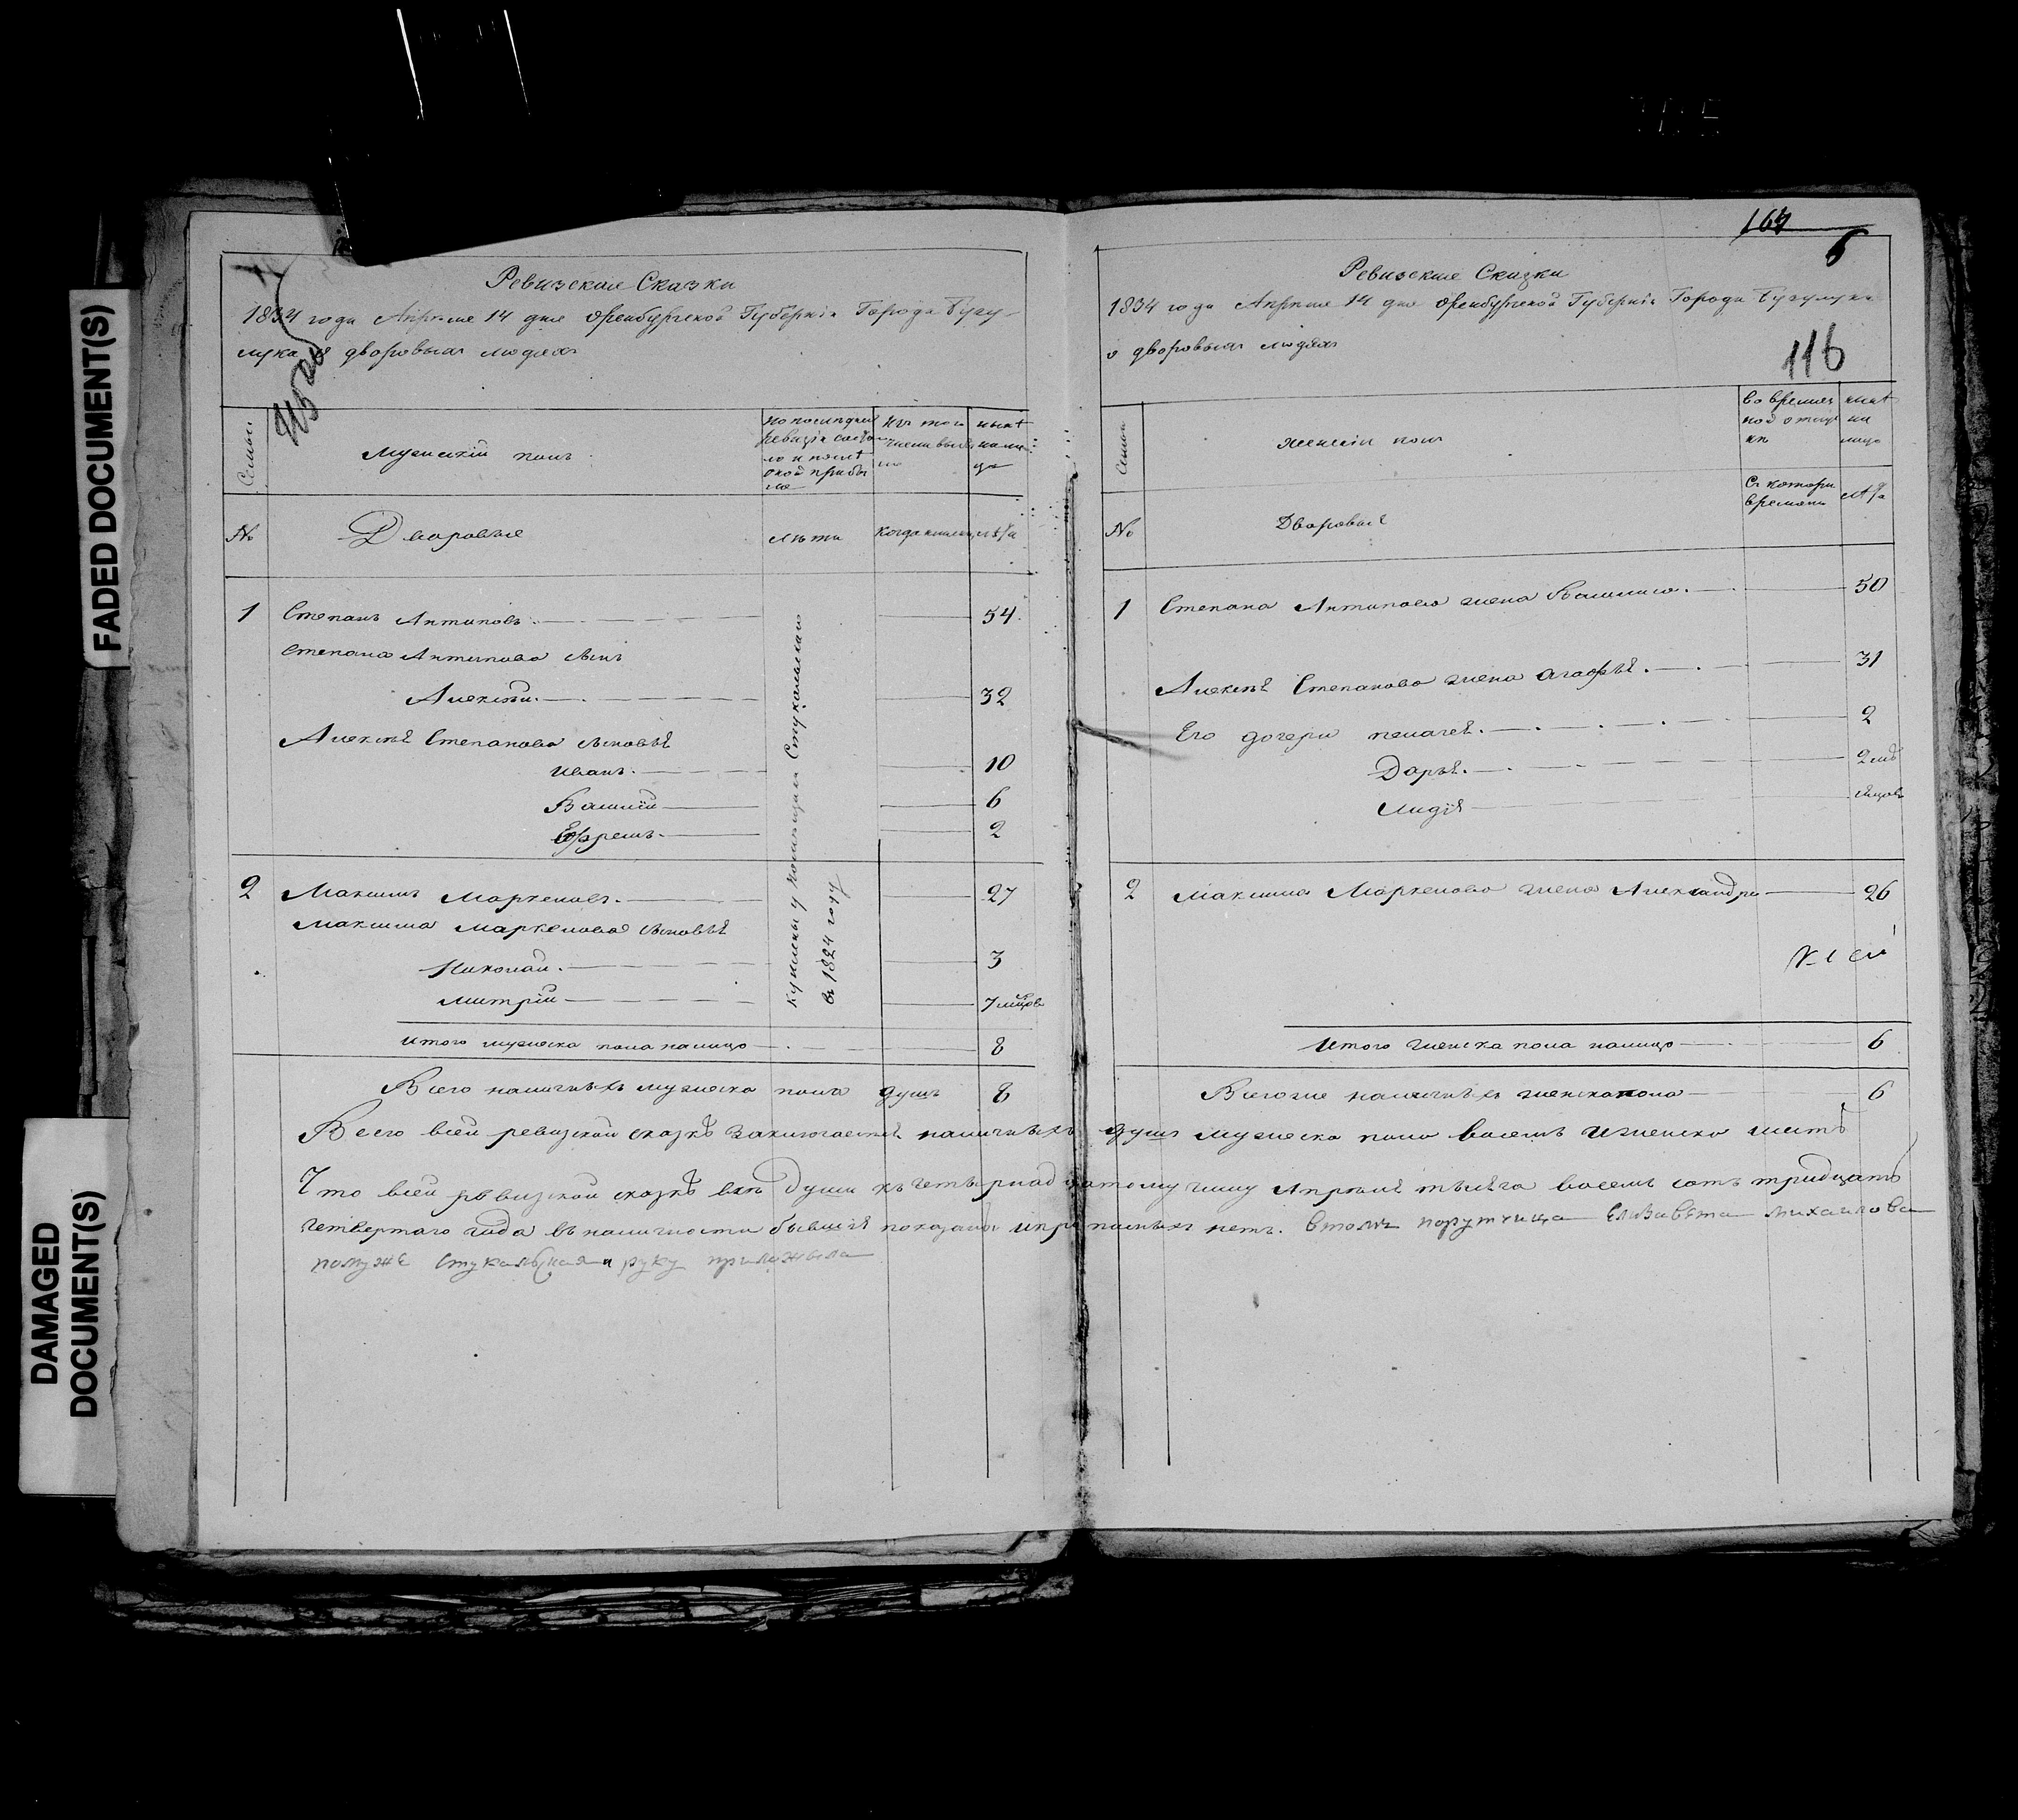 FADED DOCUMENT(S)
DAMAGED
DOCUMENT(S)
Ревизския Сказки
1834 года Апреля 14 дня Оренбургской Губерніи Города Бугу-
лука о дворовыхъ людяхъ
Семьи
Мужескій полъ
по последней
ревизіи состоя-
ло и после
оной прибы
ло
изъ того
числа выбы
ло
ныне
нали
цо
№
Дворовые
лета
когда именно
лета
1
Степанъ Антиповъ 54
Степана Антипова сынъ
Алексей 32
Алексея Степанова сыновья
Иванъ 10
Василій 6
Ефремъ 2
2
Максимъ Маркеловъ 27
Максима Маркелова сыновья
Николай 3
Митрій 7 мецов
куплены у помещицы Стукольской
въ 1824 году
итого мужеска пола налицо 8
Всего наличныхъ мужеска пола душъ 8
167
6
Ревизския Сказки
1834 года Апреля 14 дня Оренбургской Губерніи Города Бугулука
о дворовыхъ людяхъ
116
Семьи
женскій полъ
во времен
ной отлуч
ке
ныне
на
лицо
Съ котораго
времени
лета
№
Дворовые
1
Степана Антипова жена Васились 50
Алексея Степанова жена Агафья 31
Его дочери 2
Дарья
Лидія
2
Максима Маркелова жена Александра 26
Итого женска пола налицо 6
Всего же наличныхъ женска пола 6
Всего всей ревизской сказке заключается наличныхъ душъ мужеска пола восемь и женска шесть
Что всей ревизской сказке все души къ четырнадцатому числу Апреля тысяча восемь сотъ тридцать
четвертаго года въ наличности бывшія показаны и прописныхъ нетъ. В томъ порутчица Елизавета Михайлова
по муже Стукольская руку приложила